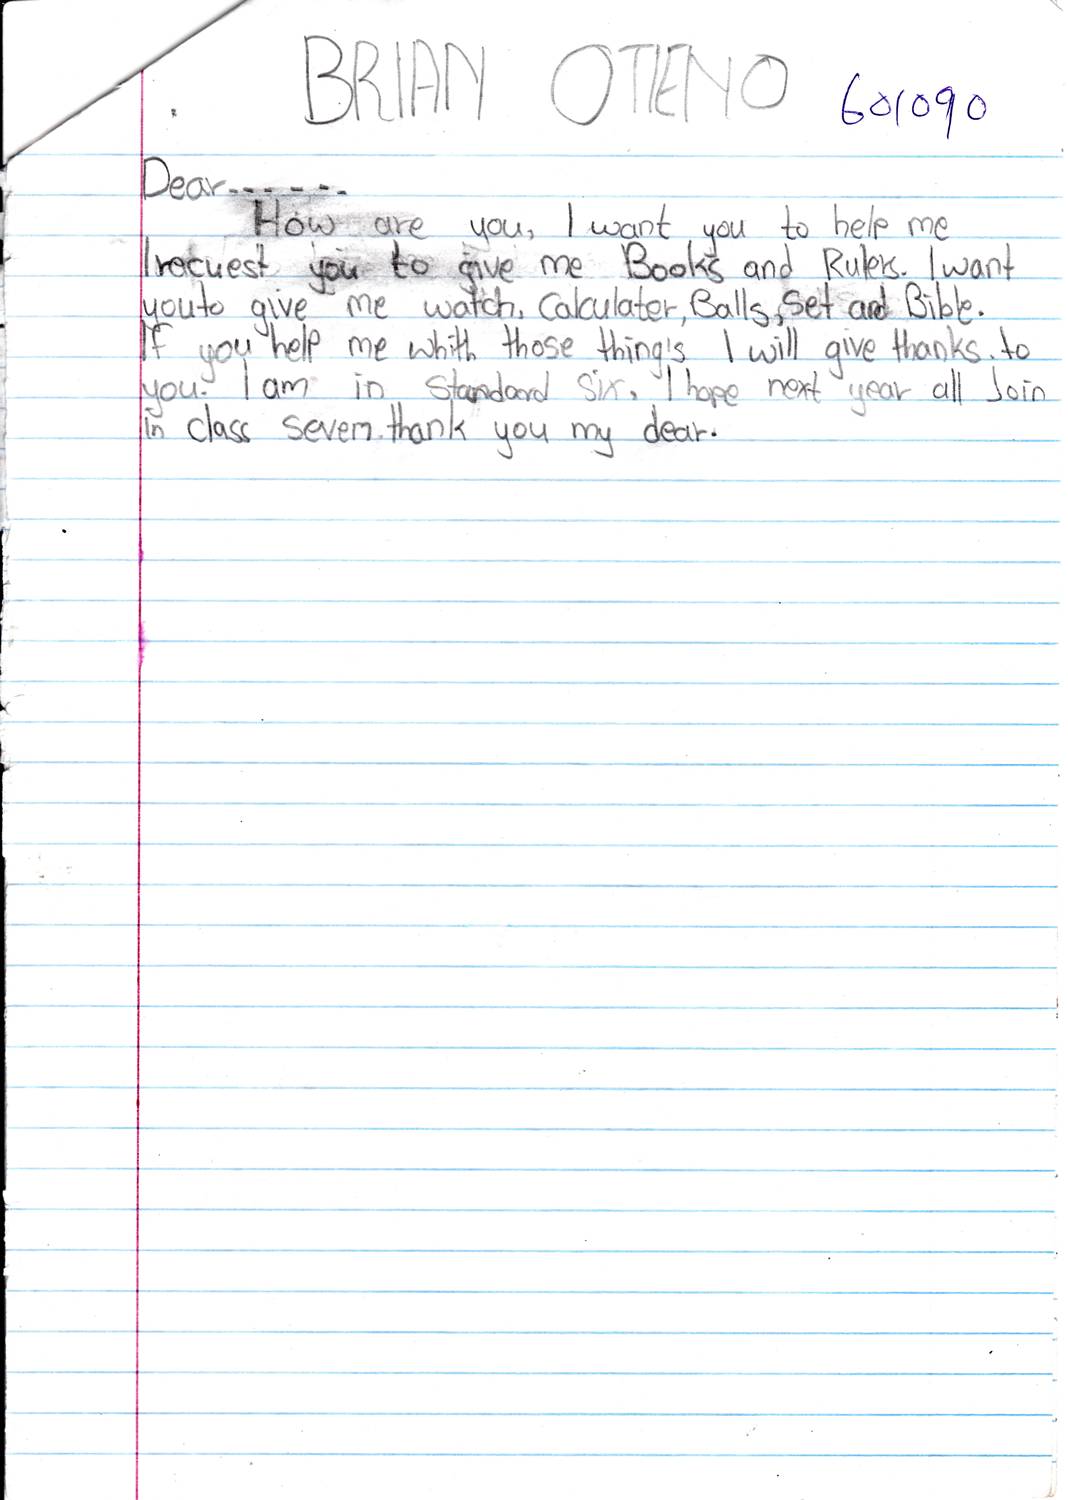 BRIAN OTIENO 601090
Dear------
How are you, I want you to help me
I rocuest you to give me Books and Rulers. I want
youto give me watch, Calculater, Balls, Set and Bible.
If you help me whith those thing's I will give thanks to
you. I am in Standard Six, I hope next year all Join
in class seven. thank you my dear.